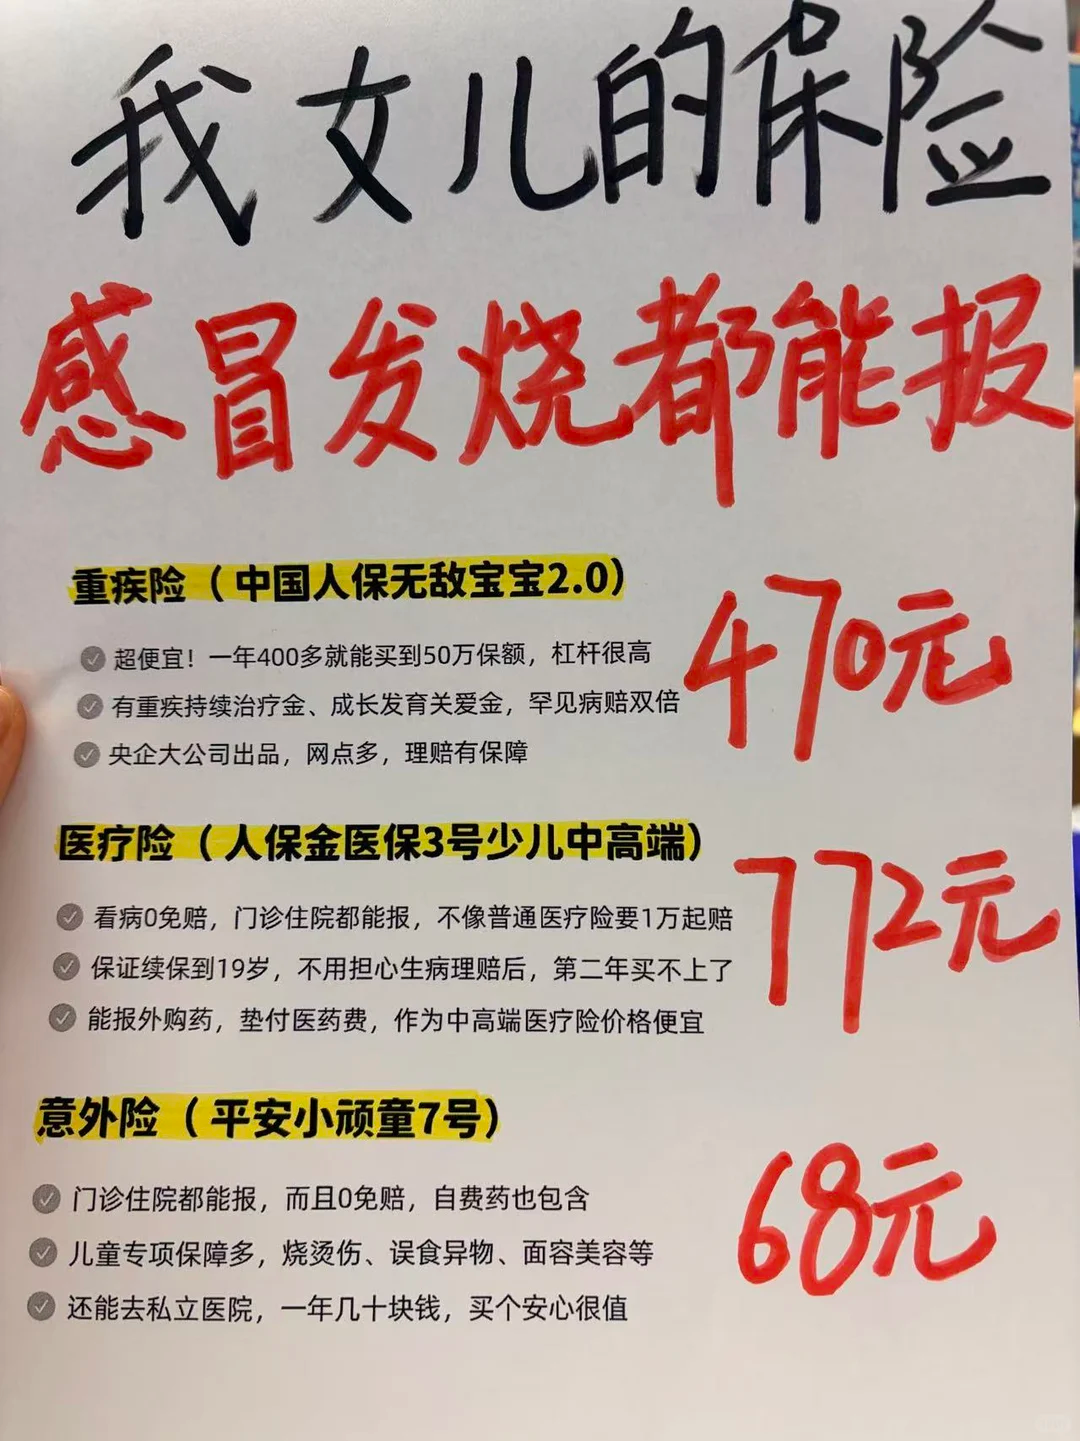 我女儿的保险
感冒发烧都能报
重疾险（中国人保无敌宝宝2.0）
470元
超便宜！一年400多就能买到50万保额，杠杆很高
有重疾持续治疗金、成长发育关爱金，罕见病赔双倍
央企大公司出品，网点多，理赔有保障
医疗险（人保金医保3号少儿中高端）
772元
看病0免赔，门诊住院都能报，不像普通医疗险要1万起赔
保证续保到19岁，不用担心生病理赔后，第二年买不上了
能报外购药，垫付医药费，作为中高端医疗险价格便宜
意外险（平安小顽童7号）
68元
门诊住院都能报，而且0免赔，自费药也包含
儿童专项保障多，烧烫伤、误食异物、面容美容等
还能去私立医院，一年几十块钱，买个安心很值